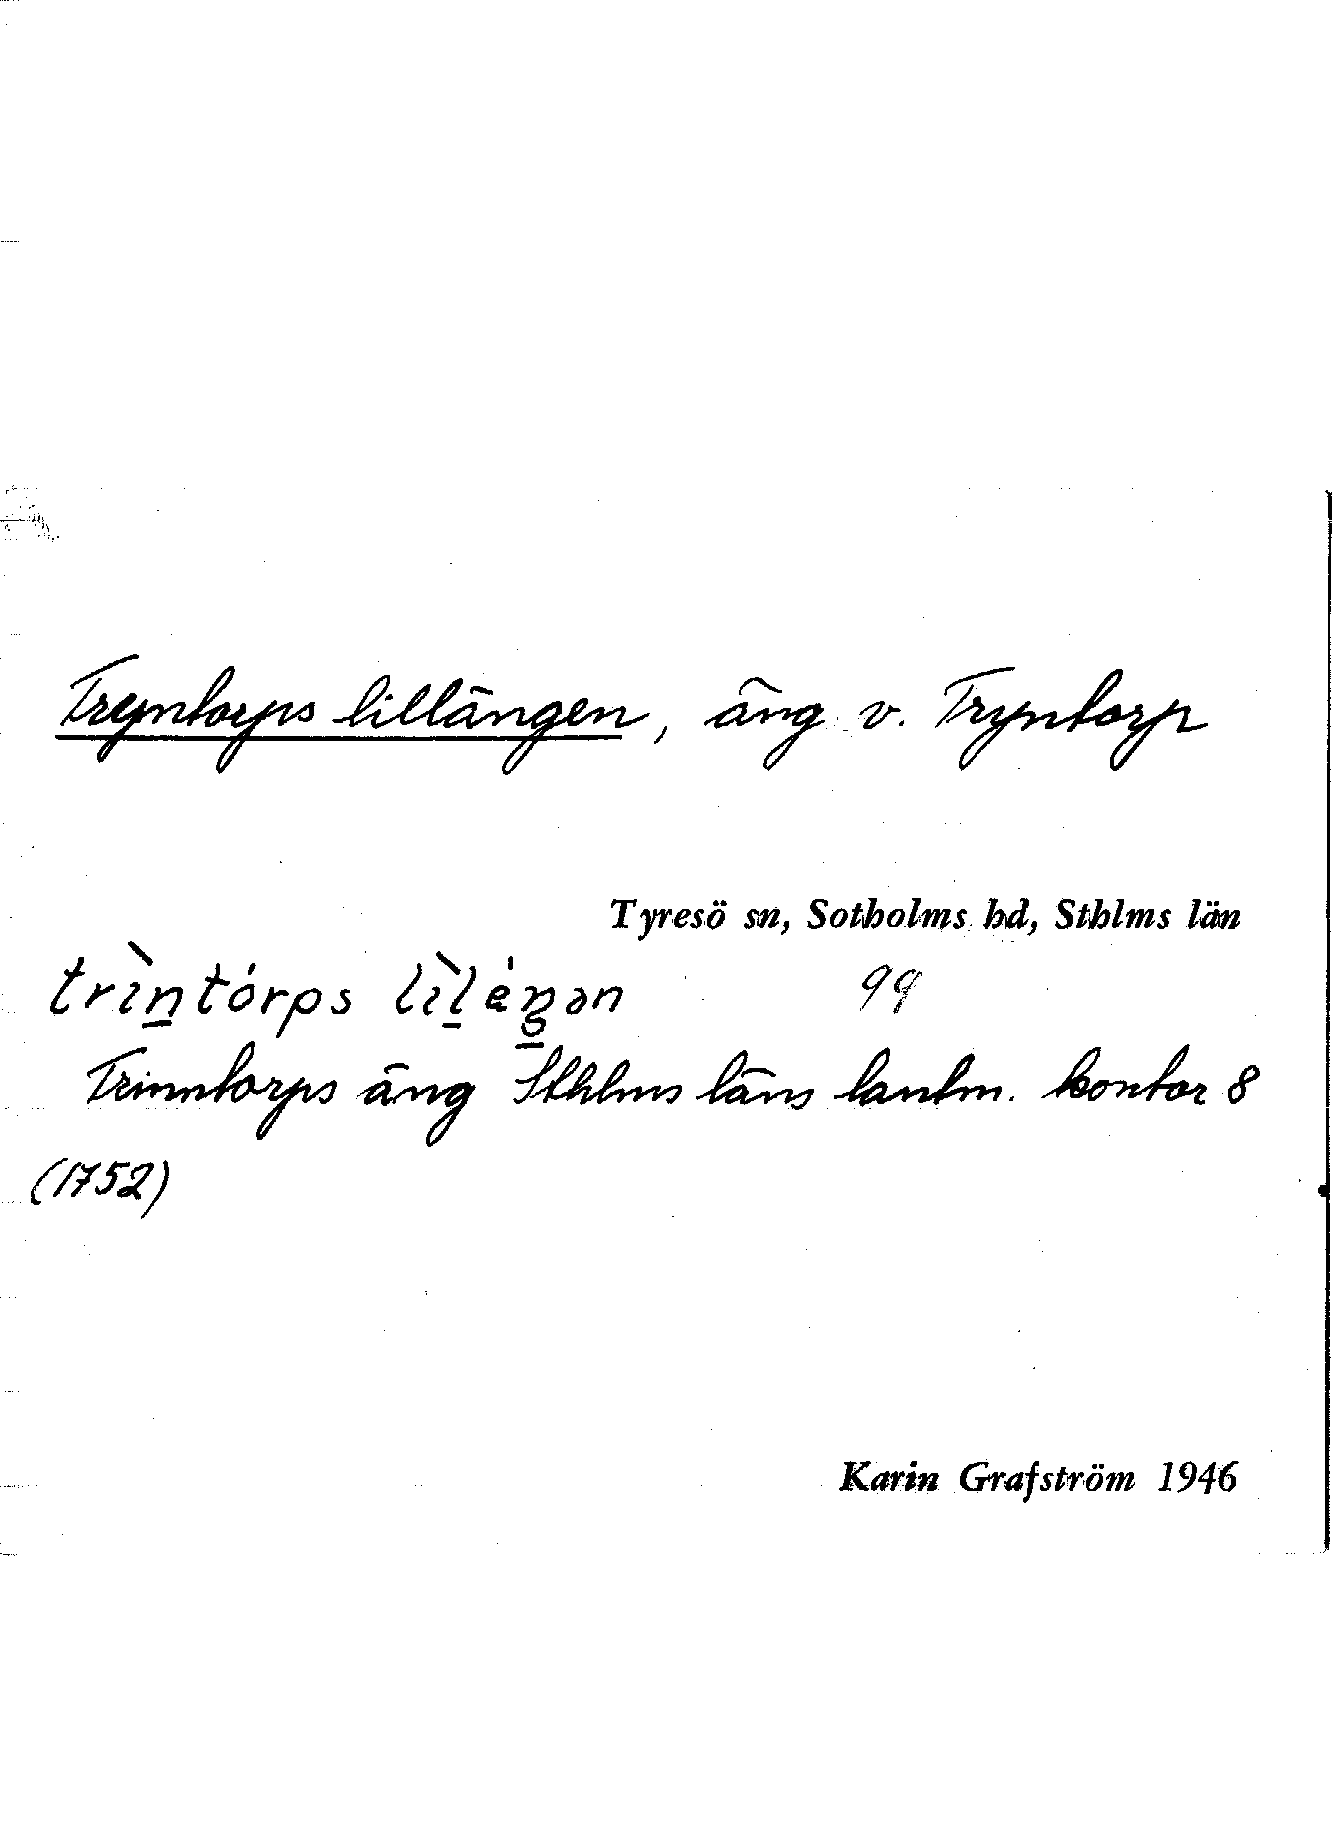 Tryntorps lillängen, äng v. Tryntorp
Tyresö sn, Sotholms hd, Sthlms län
trìn̠tórps lìl̠éŋ̠ən 99
Trinntorps äng Sthlms läns lantm. kontor 8
(1752)
Karin Grafström 1946